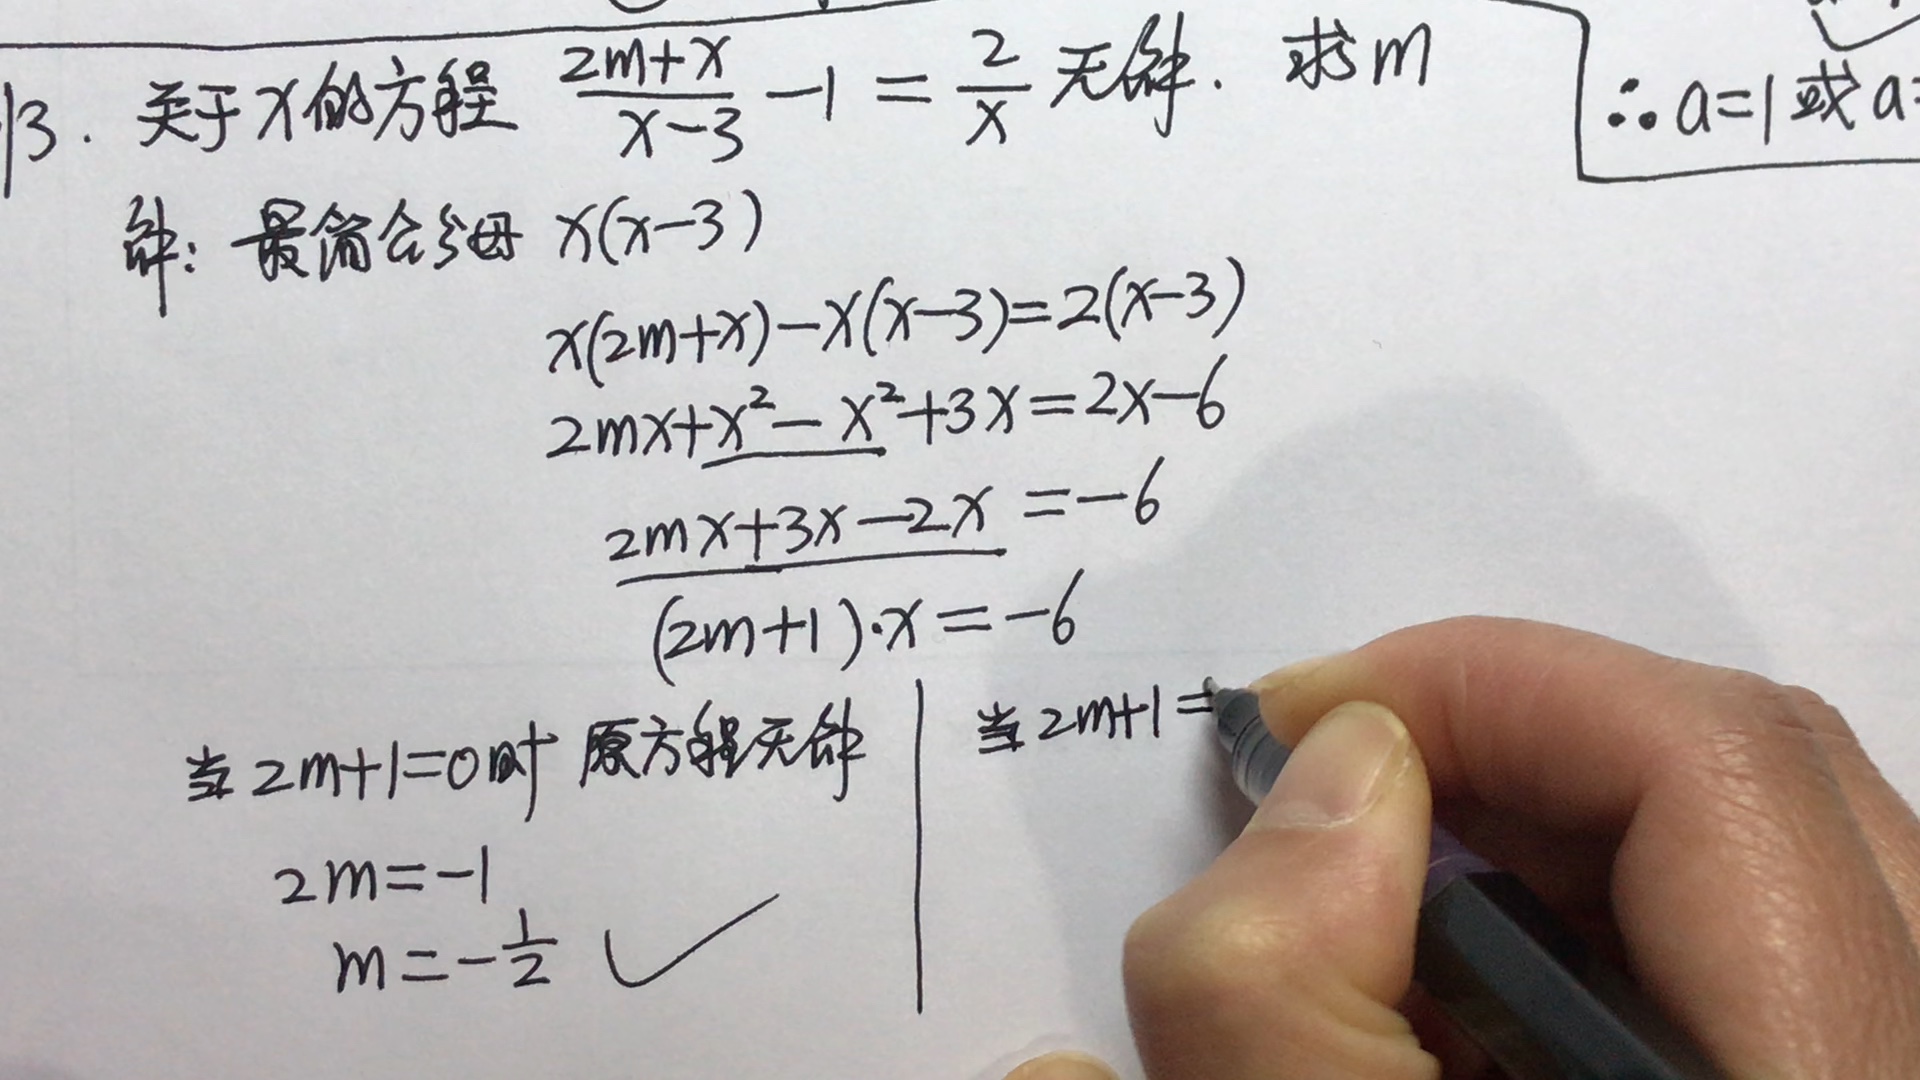 13. 关于x的方程 \frac{2m+x}{x-3} -1 = \frac{2}{x} 无解. 求m
∴ a=1 或 a=
解: 最简公分母 x(x-3)
x(2m+x)-x(x-3)=2(x-3)
2mx+x²-x²+3x=2x-6
2mx+3x-2x=-6
(2m+1)·x=-6
当2m+1=0时 原方程无解
2m=-1
m=-\frac{1}{2} ✓
当2m+1=